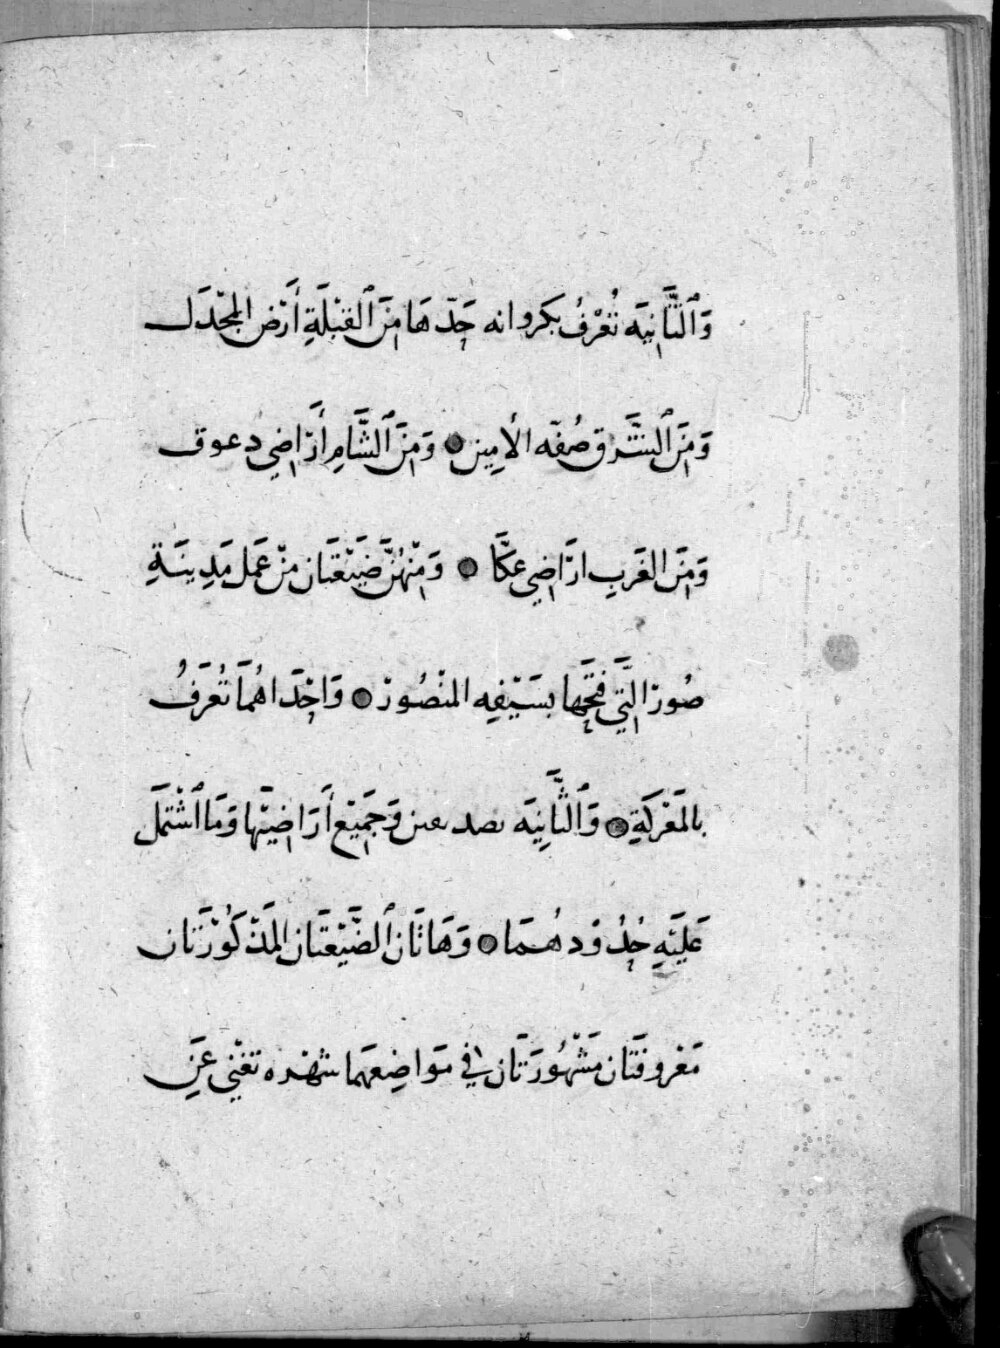 وَٱلثَّانِيَه تُعْرَفُ بكروانه حَدّهَا مِنَ ٱلقِبْلَةِ أَرْض المَجْدَل
وَمِنَ ٱلشَّرق صُفّه الأمِين وَمِنَ ٱلشَّامِ أَرَاضِي دعوق
وَمِنَ الغَربِ ارَاضِي عَكّا وَمِنْهُنَّ ضَيْعَتَان مِنْ عَمَل مَدِينَةِ
صُورَ الَّتِي فَتَحَها بسَيْفِهِ المنْصُور وَاحِدَاهُمَا تُعَرَفُ
بالمَعْرَكَةِ وَٱلثَّانِيَه وَجَمِيْع أَرَاضِيْهَا وَمَا ٱشْتَمَلَ
عَلَيْهِ حُدُوْدهُمَا وَهَاتَان ٱلضَّيْعَتَان المَذْكُوْرَتَان
مَعْروفَتَان مَشْهُورَتَان في مَوَاضِعهمَا شهْره تغْنِي عَنِ